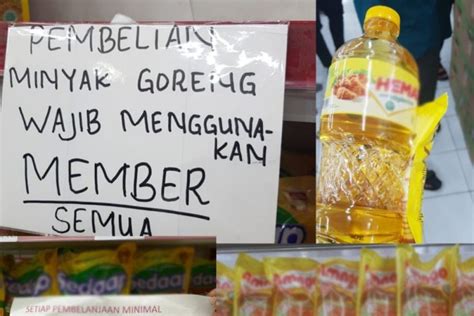 PEMBELIAN
MINYAK GORENG
WAJIB MENGGUNA-
KAN
MEMBER
SEMUA
HEMA
Sedaap
SETIAP PEMBELANJAAN MINIMAL